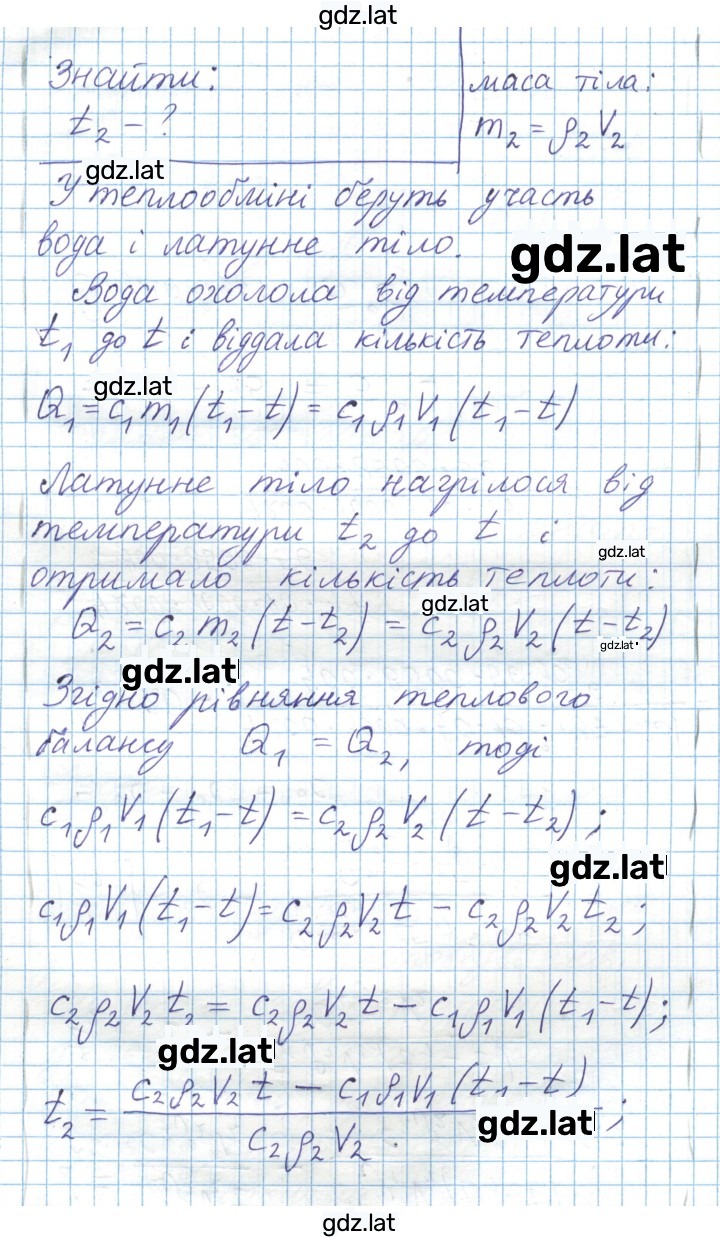 gdz.lat
Знайти:
t₂ – ?
маса тіла:
m₂ = ρ₂V₂
gdz.lat
У теплообміні беруть участь
вода і латунне тіло.
gdz.lat
Вода охолола від температури
t₁ до t і віддала кількість теплоти:
gdz.lat
Q₁ = c₁m₁(t₁ – t) = c₁ρ₁V₁(t₁ – t)
Латунне тіло нагрілося від
температури t₂ до t і
gdz.lat
отримало кількість теплоти:
gdz.lat
Q₂ = c₂m₂(t – t₂) = c₂ρ₂V₂(t – t₂)
gdz.lat
gdz.lat
Згідно рівняння теплового
балансу Q₁ = Q₂, тоді
c₁ρ₁V₁(t₁ – t) = c₂ρ₂V₂(t – t₂);
gdz.lat
c₁ρ₁V₁(t₁ – t) = c₂ρ₂V₂t – c₂ρ₂V₂t₂;
c₂ρ₂V₂t₂ = c₂ρ₂V₂t – c₁ρ₁V₁(t₁ – t);
gdz.lat
t₂ = (c₂ρ₂V₂t – c₁ρ₁V₁(t₁ – t)) / (c₂ρ₂V₂);
gdz.lat
gdz.lat